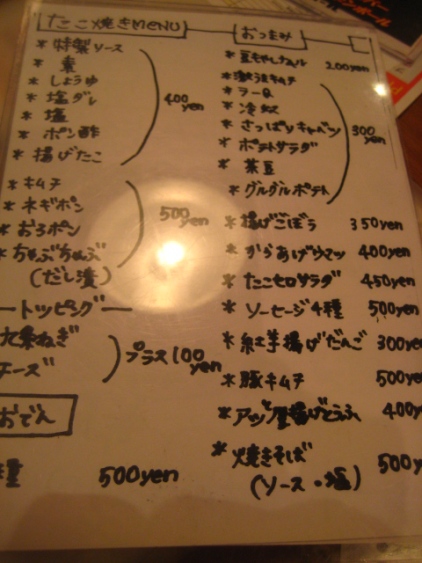 たこ焼きMENU
*特製ソース
*素
*しょうゆ
*塩ダレ
*塩
*ポン酢
*揚げたこ
400yen
*キムチ
*ネギポン
*おろポン
*ちゃぷちゃぷ
(だし漬)
500yen
トッピング
九条ねぎ
チーズ
プラス100yen
おでん
種 500yen
おつまみ
*豆もやしナムル 200yen
*キムチ
*ラーQ
*冷奴
*さっぱりキャベツ
*ポテトサラダ
*茶豆
*グルグルポテト
300yen
*揚げごぼう 350yen
*からあげウマッ 400yen
*たこセロサラダ 450yen
*ソーセージ4種 500yen
*紅芋揚げだんご 300yen
*豚キムチ 500y
*アツ厚揚げとうふ 400y
*焼きそば 500y
(ソース・塩)